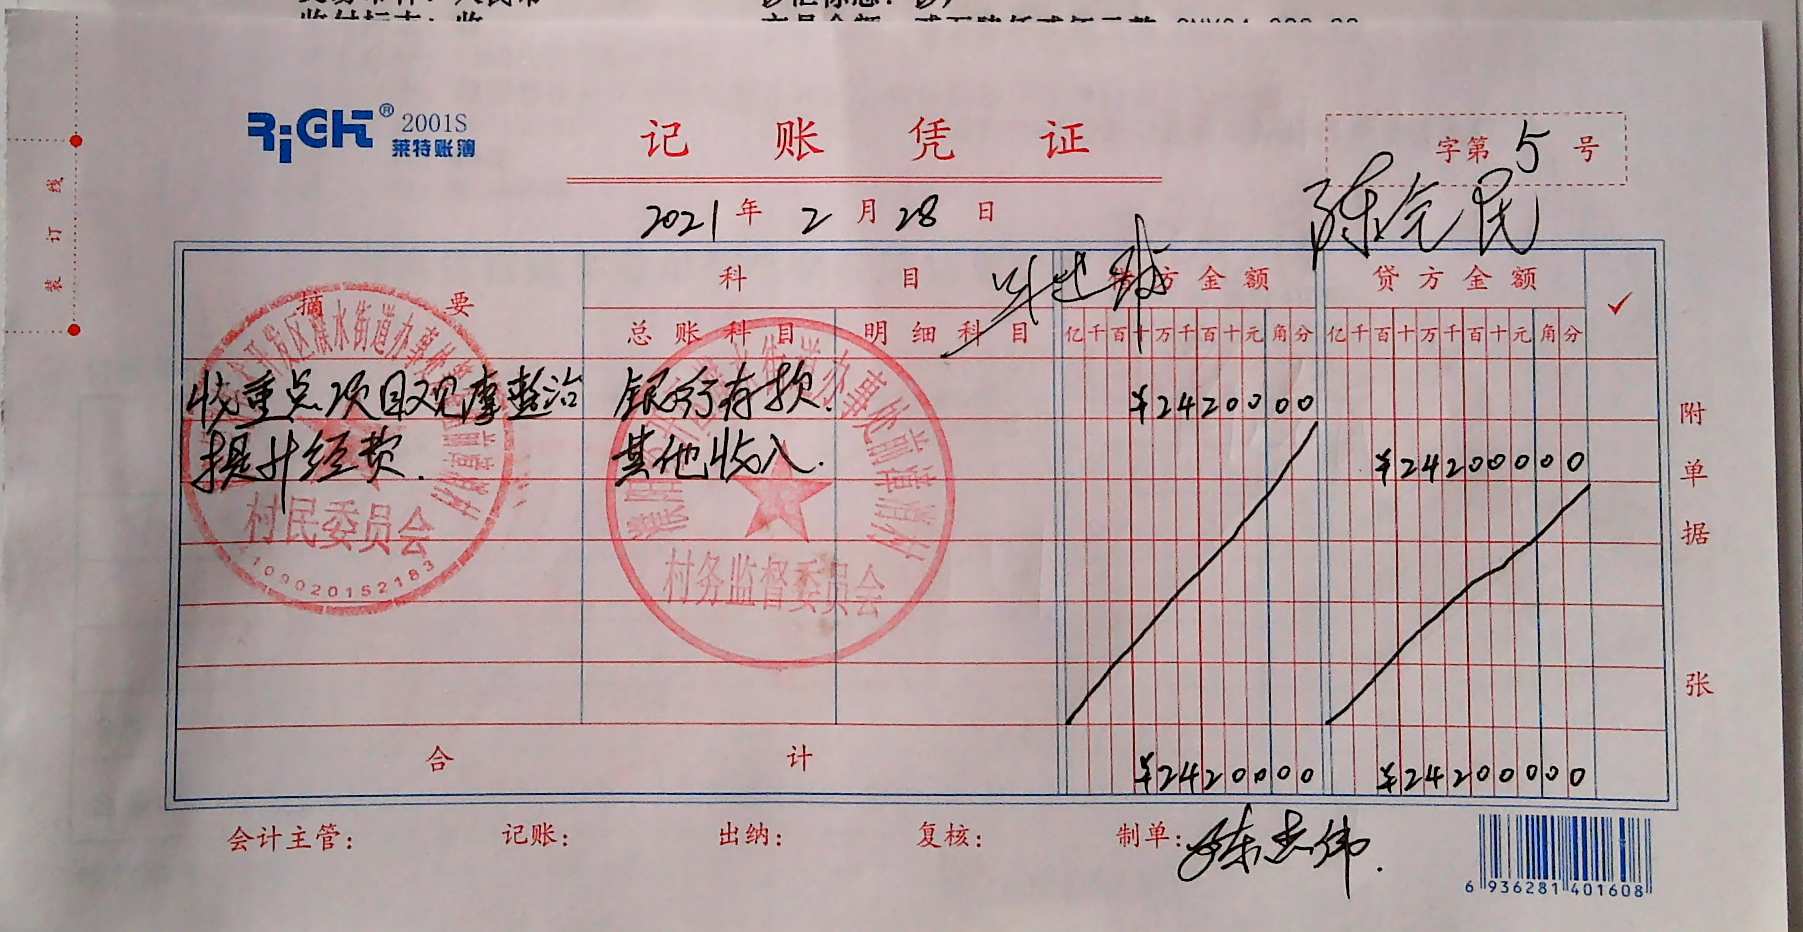 RiGHT® 2001S
莱特账簿
记账凭证
字第 5 号
2021 年 2 月 28 日
装订线
摘要
科目
借方金额
贷方金额
总账科目
明细科目
亿千百十万千百十元角分
亿千百十万千百十元角分
收重点项目观摩整治
银行存款.
¥2420000
提升经费.
其他收入.
¥24200000
村民委员会
109020152183
村务监督委员会
附单据
张
合计
¥2420000
¥24200000
会计主管:
记账:
出纳:
复核:
制单:
陈志伟.
6 936281 401608